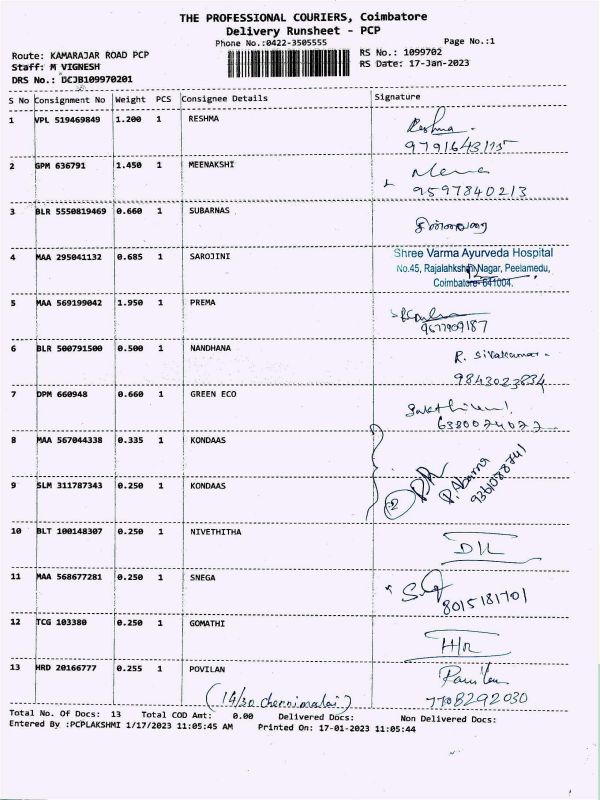 THE PROFESSIONAL COURIERS, Coimbatore
Delivery Runsheet - PCP
Phone No.:0422-3505555 Page No.:1
Route: KAMARAJAR ROAD PCP RS No.: 1099702
Staff: M VIGNESH RS Date: 17-Jan-2023
DRS No.: DCJB109970201
S No Consignment No Weight PCS Consignee Details Signature
1 VPL 519469849 1.200 1 RESHMA Reshma
9791643175
2 GPM 636791 1.450 1 MEENAKSHI Mena
9597840213
3 BLR 5550819469 0.660 1 SUBARNAS
4 MAA 295041132 0.685 1 SAROJINI Shree Varma Ayurveda Hospital
No.45, Rajalahkshmi Nagar, Peelamedu,
Coimbatore- 641004.
5 MAA 569199042 1.950 1 PREMA
9677909187
6 BLR 500791500 0.500 1 NANDHANA R. Sivakumar.
9843023834
7 DPM 660948 0.660 1 GREEN ECO Sakthivel
6380074077
8 MAA 567044338 0.335 1 KONDAAS
9 SLM 311787343 0.250 1 KONDAAS P. Abarna
9361088741
10 BLT 100148307 0.250 1 NIVETHITHA
11 MAA 568677281 0.250 1 SNEGA
8015181701
12 TCG 103380 0.250 1 GOMATHI H/R
13 HRD 20166777 0.255 1 POVILAN Povilan
7708292030
(14/30 chennimalai)
Total No. Of Docs: 13 Total COD Amt: 0.00 Delivered Docs: Non Delivered Docs:
Entered By :PCPLAKSHMI 1/17/2023 11:05:45 AM Printed On: 17-01-2023 11:05:44